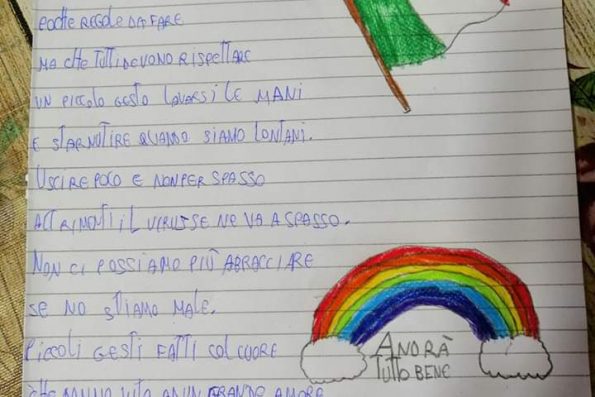 POCHE REGOLE DA FARE
MA CHE TUTTI DEVONO RISPETTARE
UN PICCOLO GESTO LAVARSI LE MANI
E STARNUTIRE QUANDO SIAMO LONTANI.
USCIRE POCO E NON PER SPASSO
ALTRIMENTI IL VIRUS SE NE VA A SPASSO.
NON CI POSSIAMO PIÙ ABRACCIARE
SE NO STIAMO MALE.
PICCOLI GESTI FATTI COL CUORE
CHE DANNO VITA A UN GRANDE AMORE
ANDRÀ
TUTTO BENE